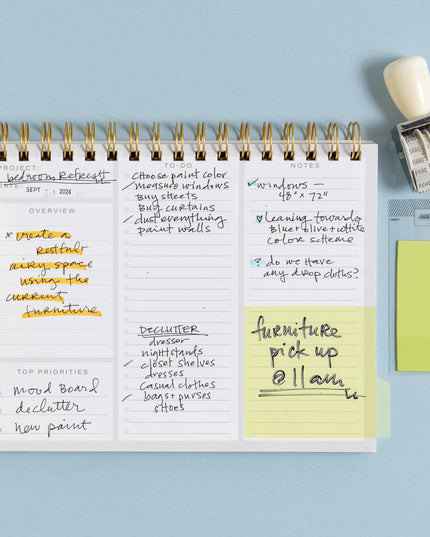 PROJECT:
bedroom Refresh
DATE:
SEPT 2024
OVERVIEW
* create a
restful
airy space
using the
current
furniture
TOP PRIORITIES
mood Board
declutter
new paint
TO-DO
choose paint color
✓ measure windows
Buy sheets
Buy curtains
✓ dust everything
paint walls
DECLUTTER
dresser
nightstands
✓ closet shelves
dresses
casual clothes
✓ bags + purses
shoes
NOTES
✓ windows —
48" x 72"
♥ leaning towards
Blue + olive + white
color scheme
? do we have
any drop cloths?
furniture
pick up
@ 11am